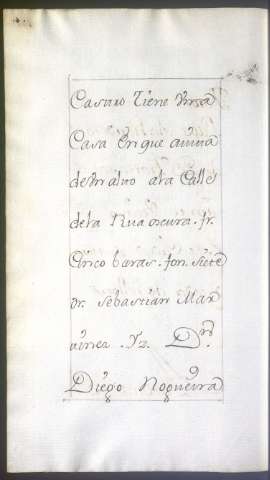 Castro Tiene Vnsa
Casa En que auita
destn alto ala Calle
dela Rua oscura . fr.
Cinco baras . fon . siete
Dr. Sebastian Mar
tinez . Yz . D.n
Diego Nogueira